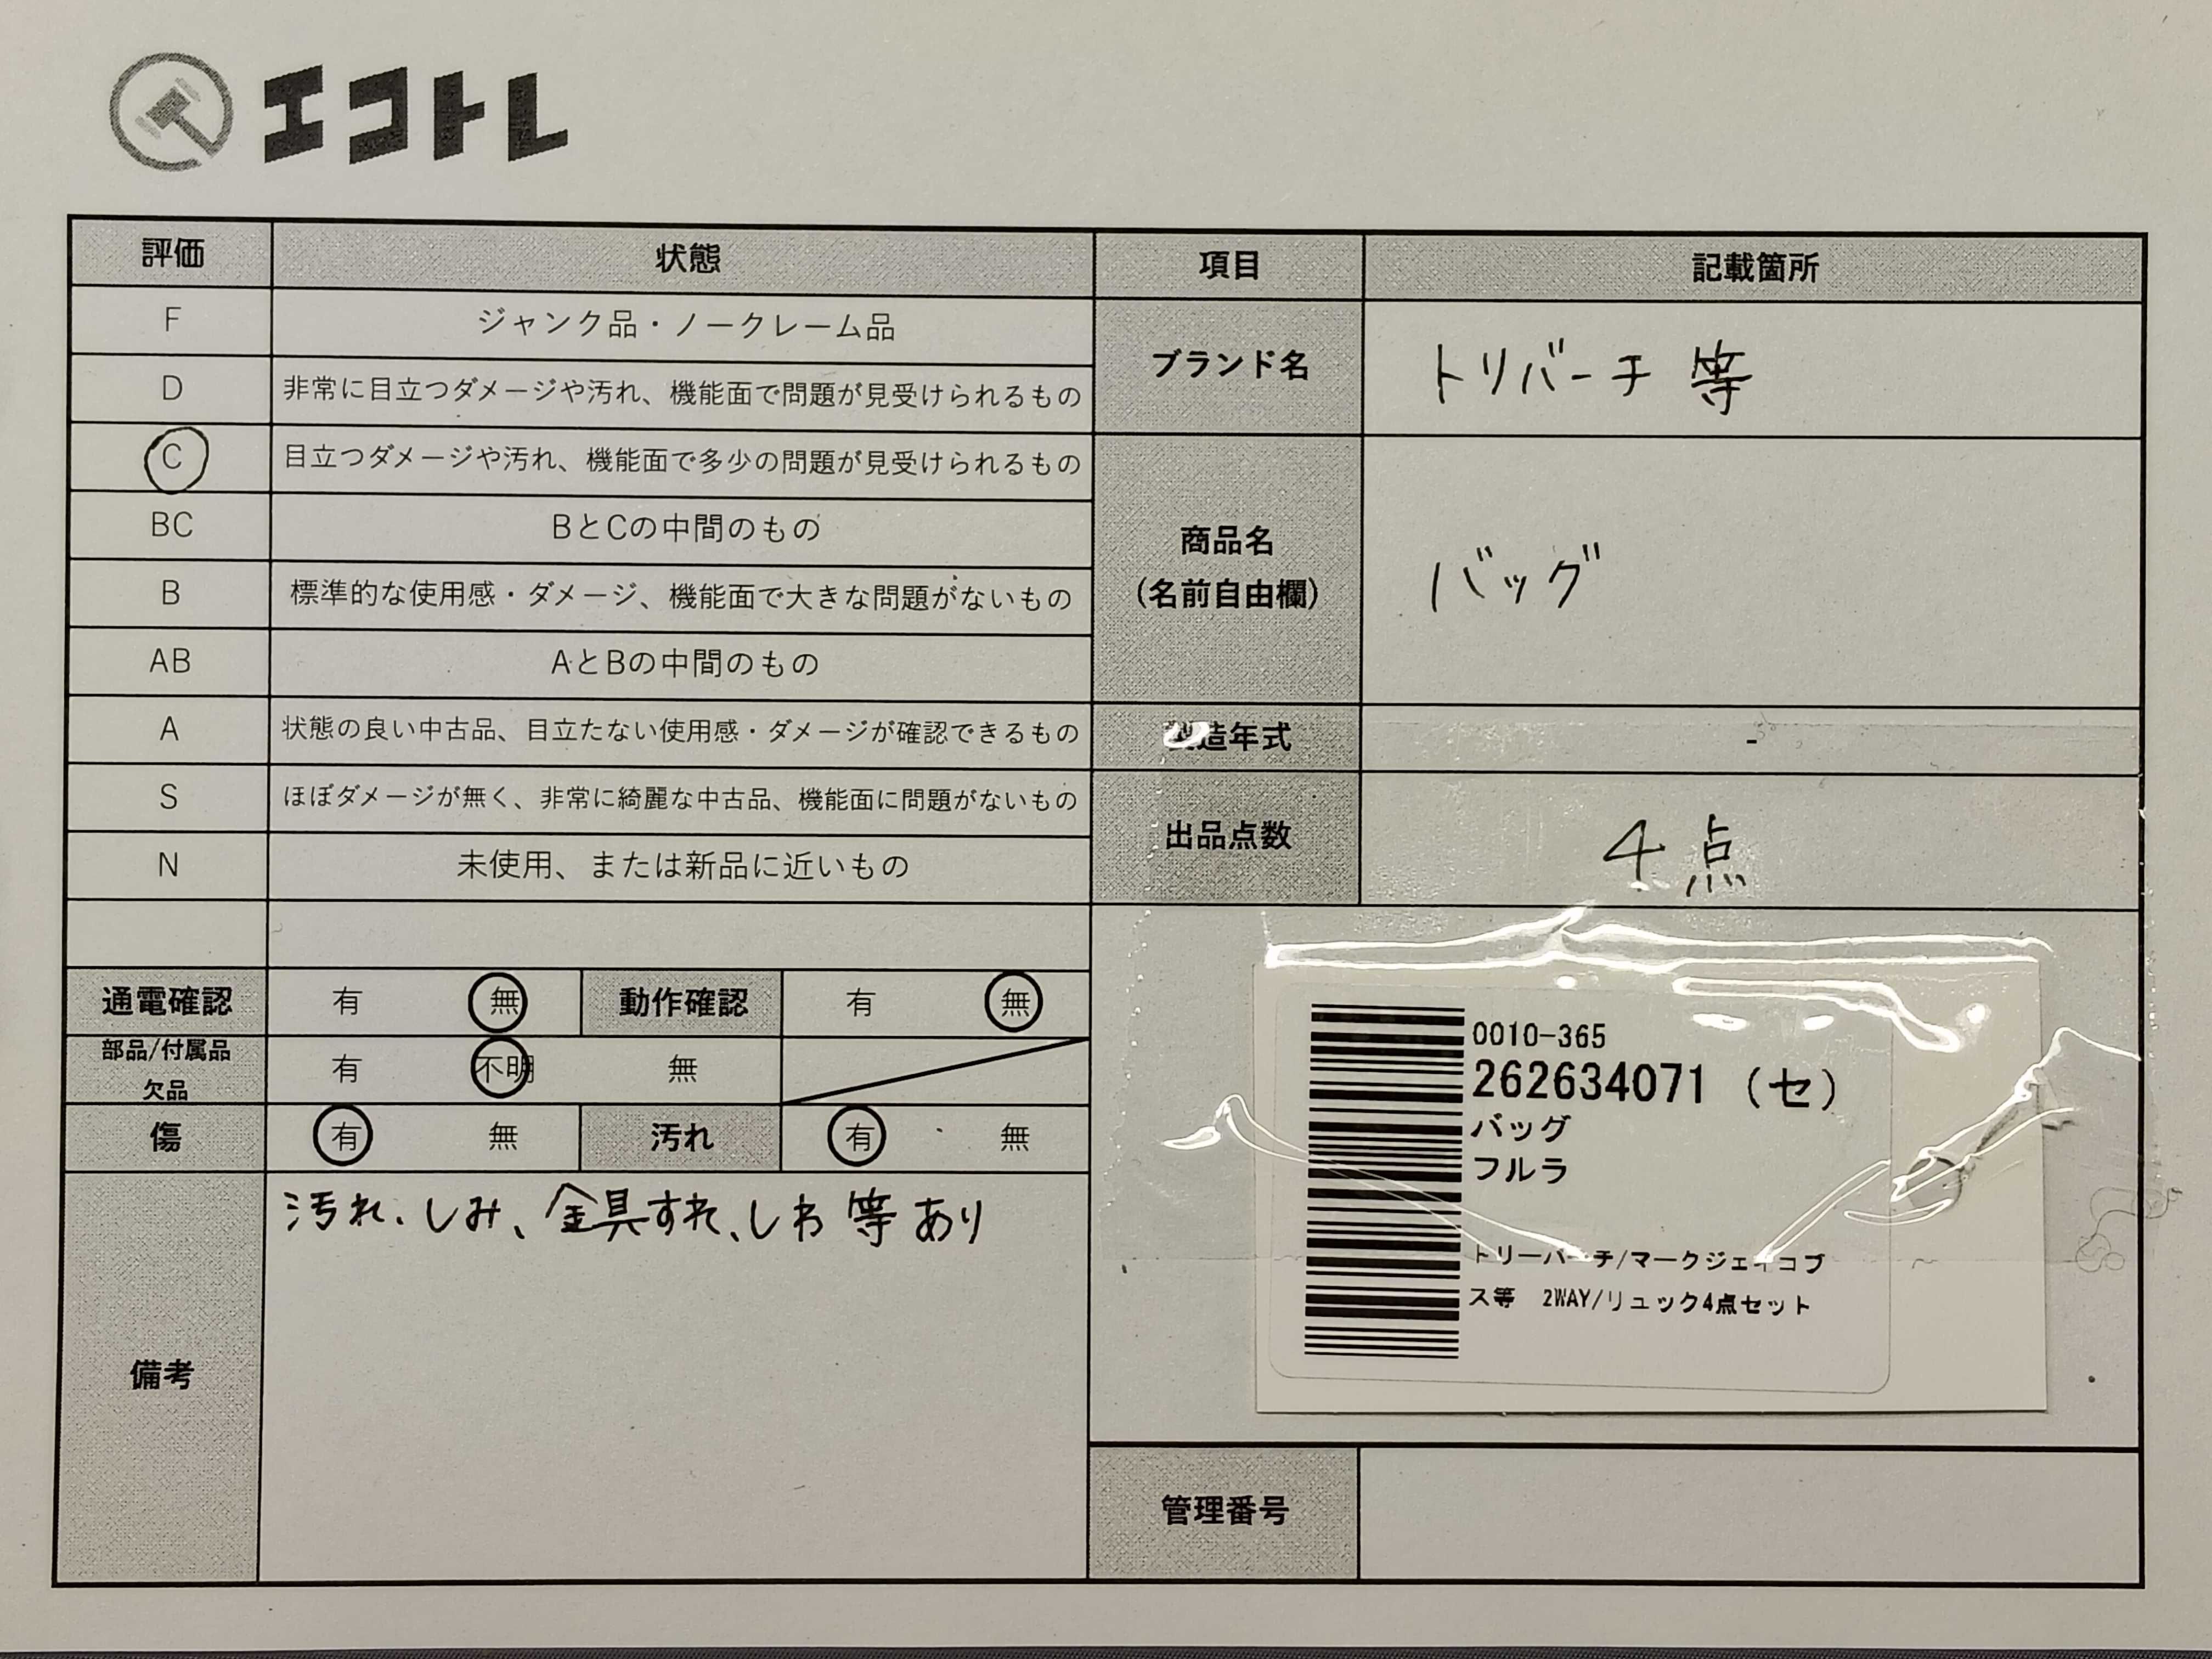 エコトレ
評価 状態 項目 記載箇所
F ジャンク品・ノークレーム品
D 非常に目立つダメージや汚れ、機能面で問題が見受けられるもの
C 目立つダメージや汚れ、機能面で多少の問題が見受けられるもの
BC BとCの中間のもの
B 標準的な使用感・ダメージ、機能面で大きな問題がないもの
AB AとBの中間のもの
A 状態の良い中古品、目立たない使用感・ダメージが確認できるもの
S ほぼダメージが無く、非常に綺麗な中古品、機能面に問題がないもの
N 未使用、または新品に近いもの
通電確認 有 無 動作確認 有 無
部品/付属品
欠品 有 不明 無
傷 有 無 汚れ 有 無
備考 汚れ、しみ、金具すれ、しわ等あり
ブランド名 トリバーチ 等
商品名
(名前自由欄) バッグ
製造年式 -
出品点数 4点
0010-365
262634071 (セ)
バッグ
フルラ
トリーバーチ/マークジェイコブ
ス等 2WAY/リュック4点セット
管理番号